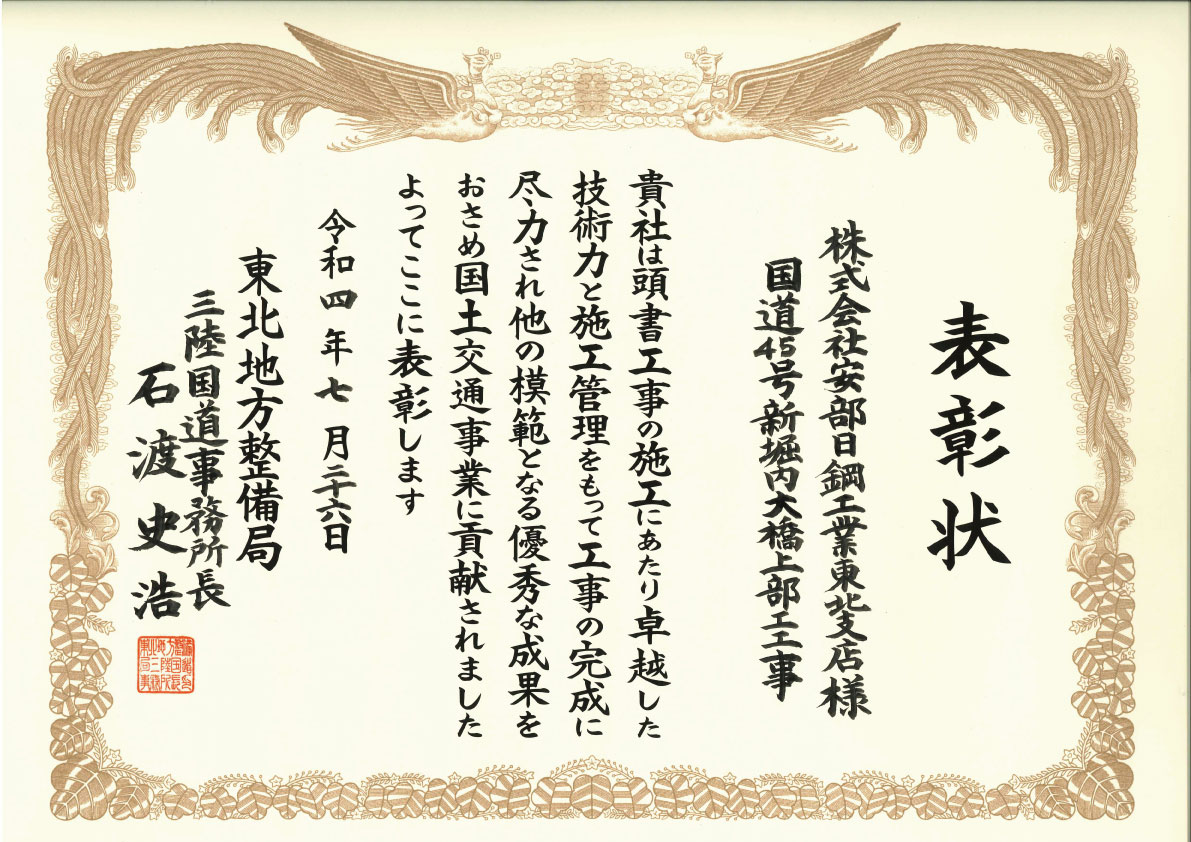 表彰状
株式会社安部日鋼工業東北支店様
国道45号新堀内大橋上部工工事
貴社は頭書工事の施工にあたり卓越した
技術力と施工管理をもって工事の完成に
尽力され他の模範となる優秀な成果を
おさめ国土交通事業に貢献されました
よってここに表彰します
令和四年七月二十六日
東北地方整備局
三陸国道事務所長
石渡史浩